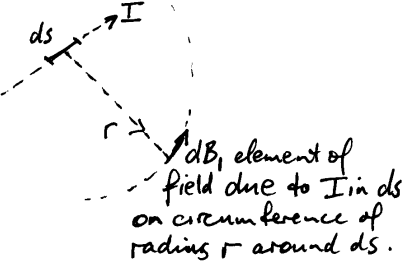 ds
I
r
dB, element of
field due to I in ds
on circumference of
radius r around ds.